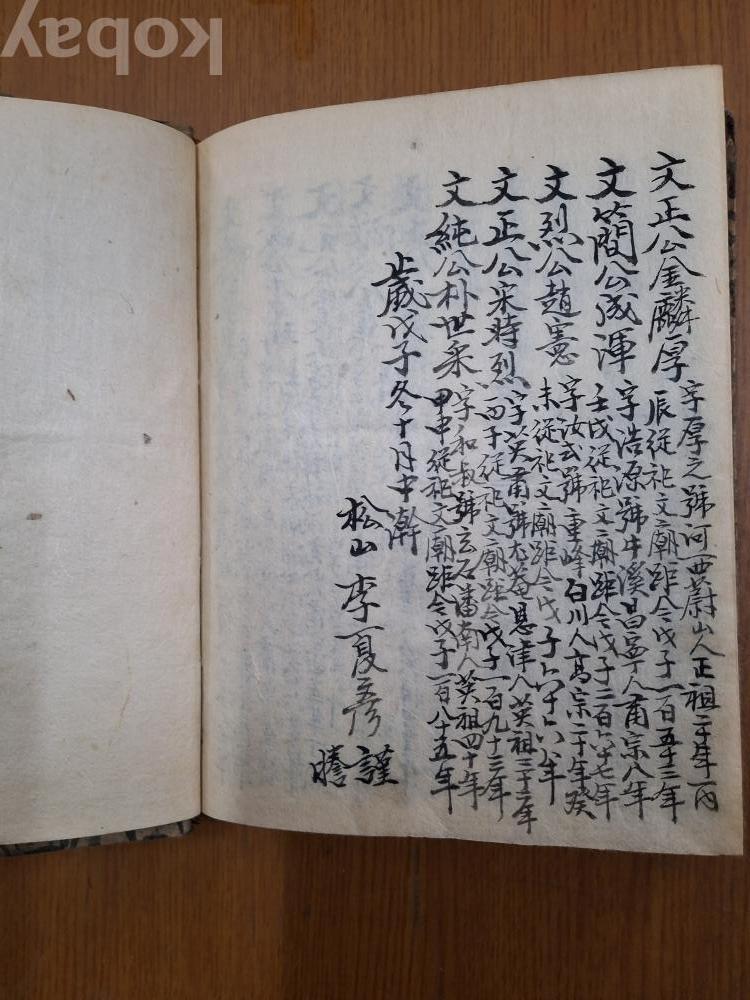 文正公金麟厚
字厚之號河西蔚山人正祖二十年丙
辰從祀文廟距今戊子一百五十三年
文簡公成渾
字浩源號牛溪昌寧人肅宗八年
壬戌從祀文廟距今戊子二百六十七年
文烈公趙憲
字汝式號重峰白川人高宗二十年癸
未從祀文廟距今戊子六十六年
文正公宋時烈
字英甫號尤菴恩津人英祖三十二年
丙子從祀文廟距今戊子一百九十三年
文純公朴世采
字和叔號玄石潘南人英祖四十年
甲申從祀文廟距今戊子一百八十五年
歲戊子冬十月中澣
松山 李夏彦 謹
謄
kobay